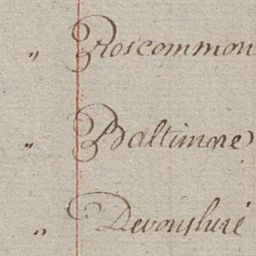 „ Roscommon
„ Baltimore
„ Devonshire